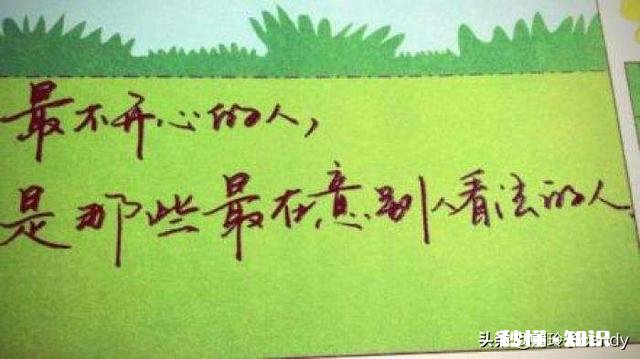 最不开心的人，
是那些最在意别人看法的人
秒懂·知识